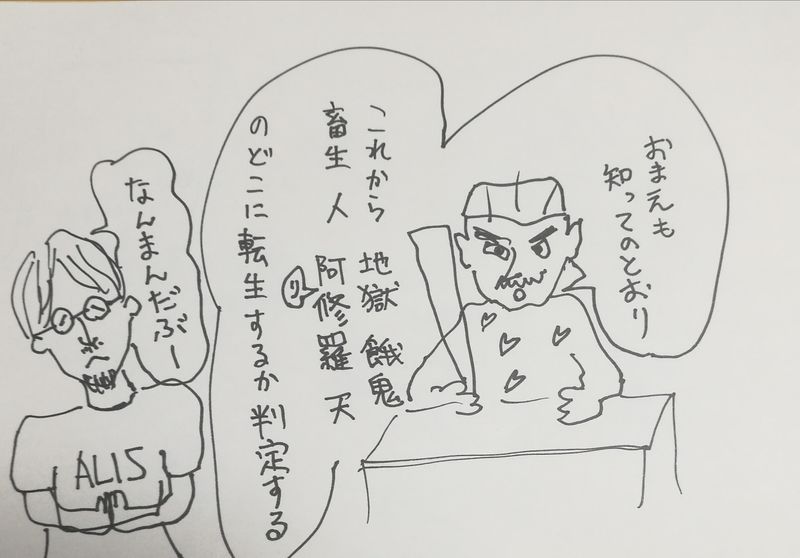 おまえも
知ってのとおり
これから 地獄 餓鬼
畜生 人 阿修羅 天
り
のどこに転生するか判定する
なんまんだぶー
ALIS